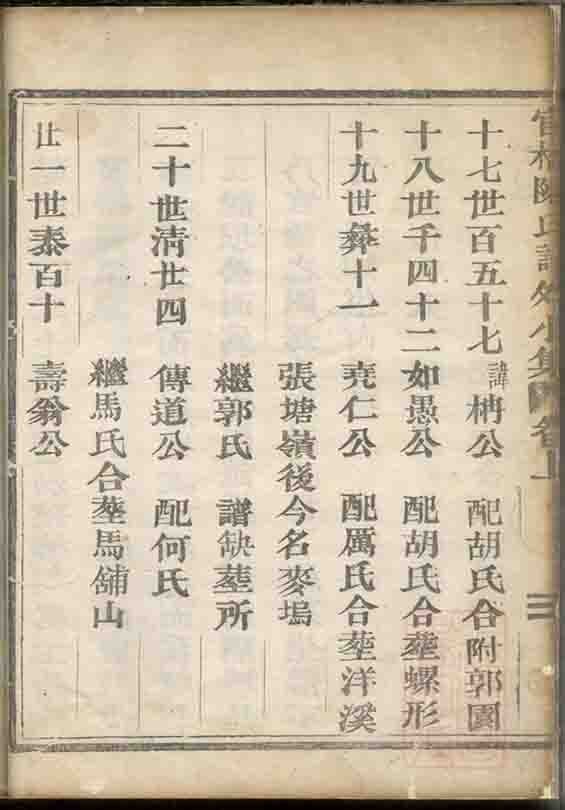 陳氏譜外小集 卷上
十七世百五十七 諱枬公 配胡氏合附郭園
十八世千四十二 如愚公 配胡氏合塟螺形
十九世彝十一 堯仁公 配厲氏合塟洋溪
張塘嶺後今名麥塢
繼郭氏 譜缺塟所
二十世清廿四 傳道公 配何氏
繼馬氏合塟馬舖山
廿一世泰百十 壽翁公